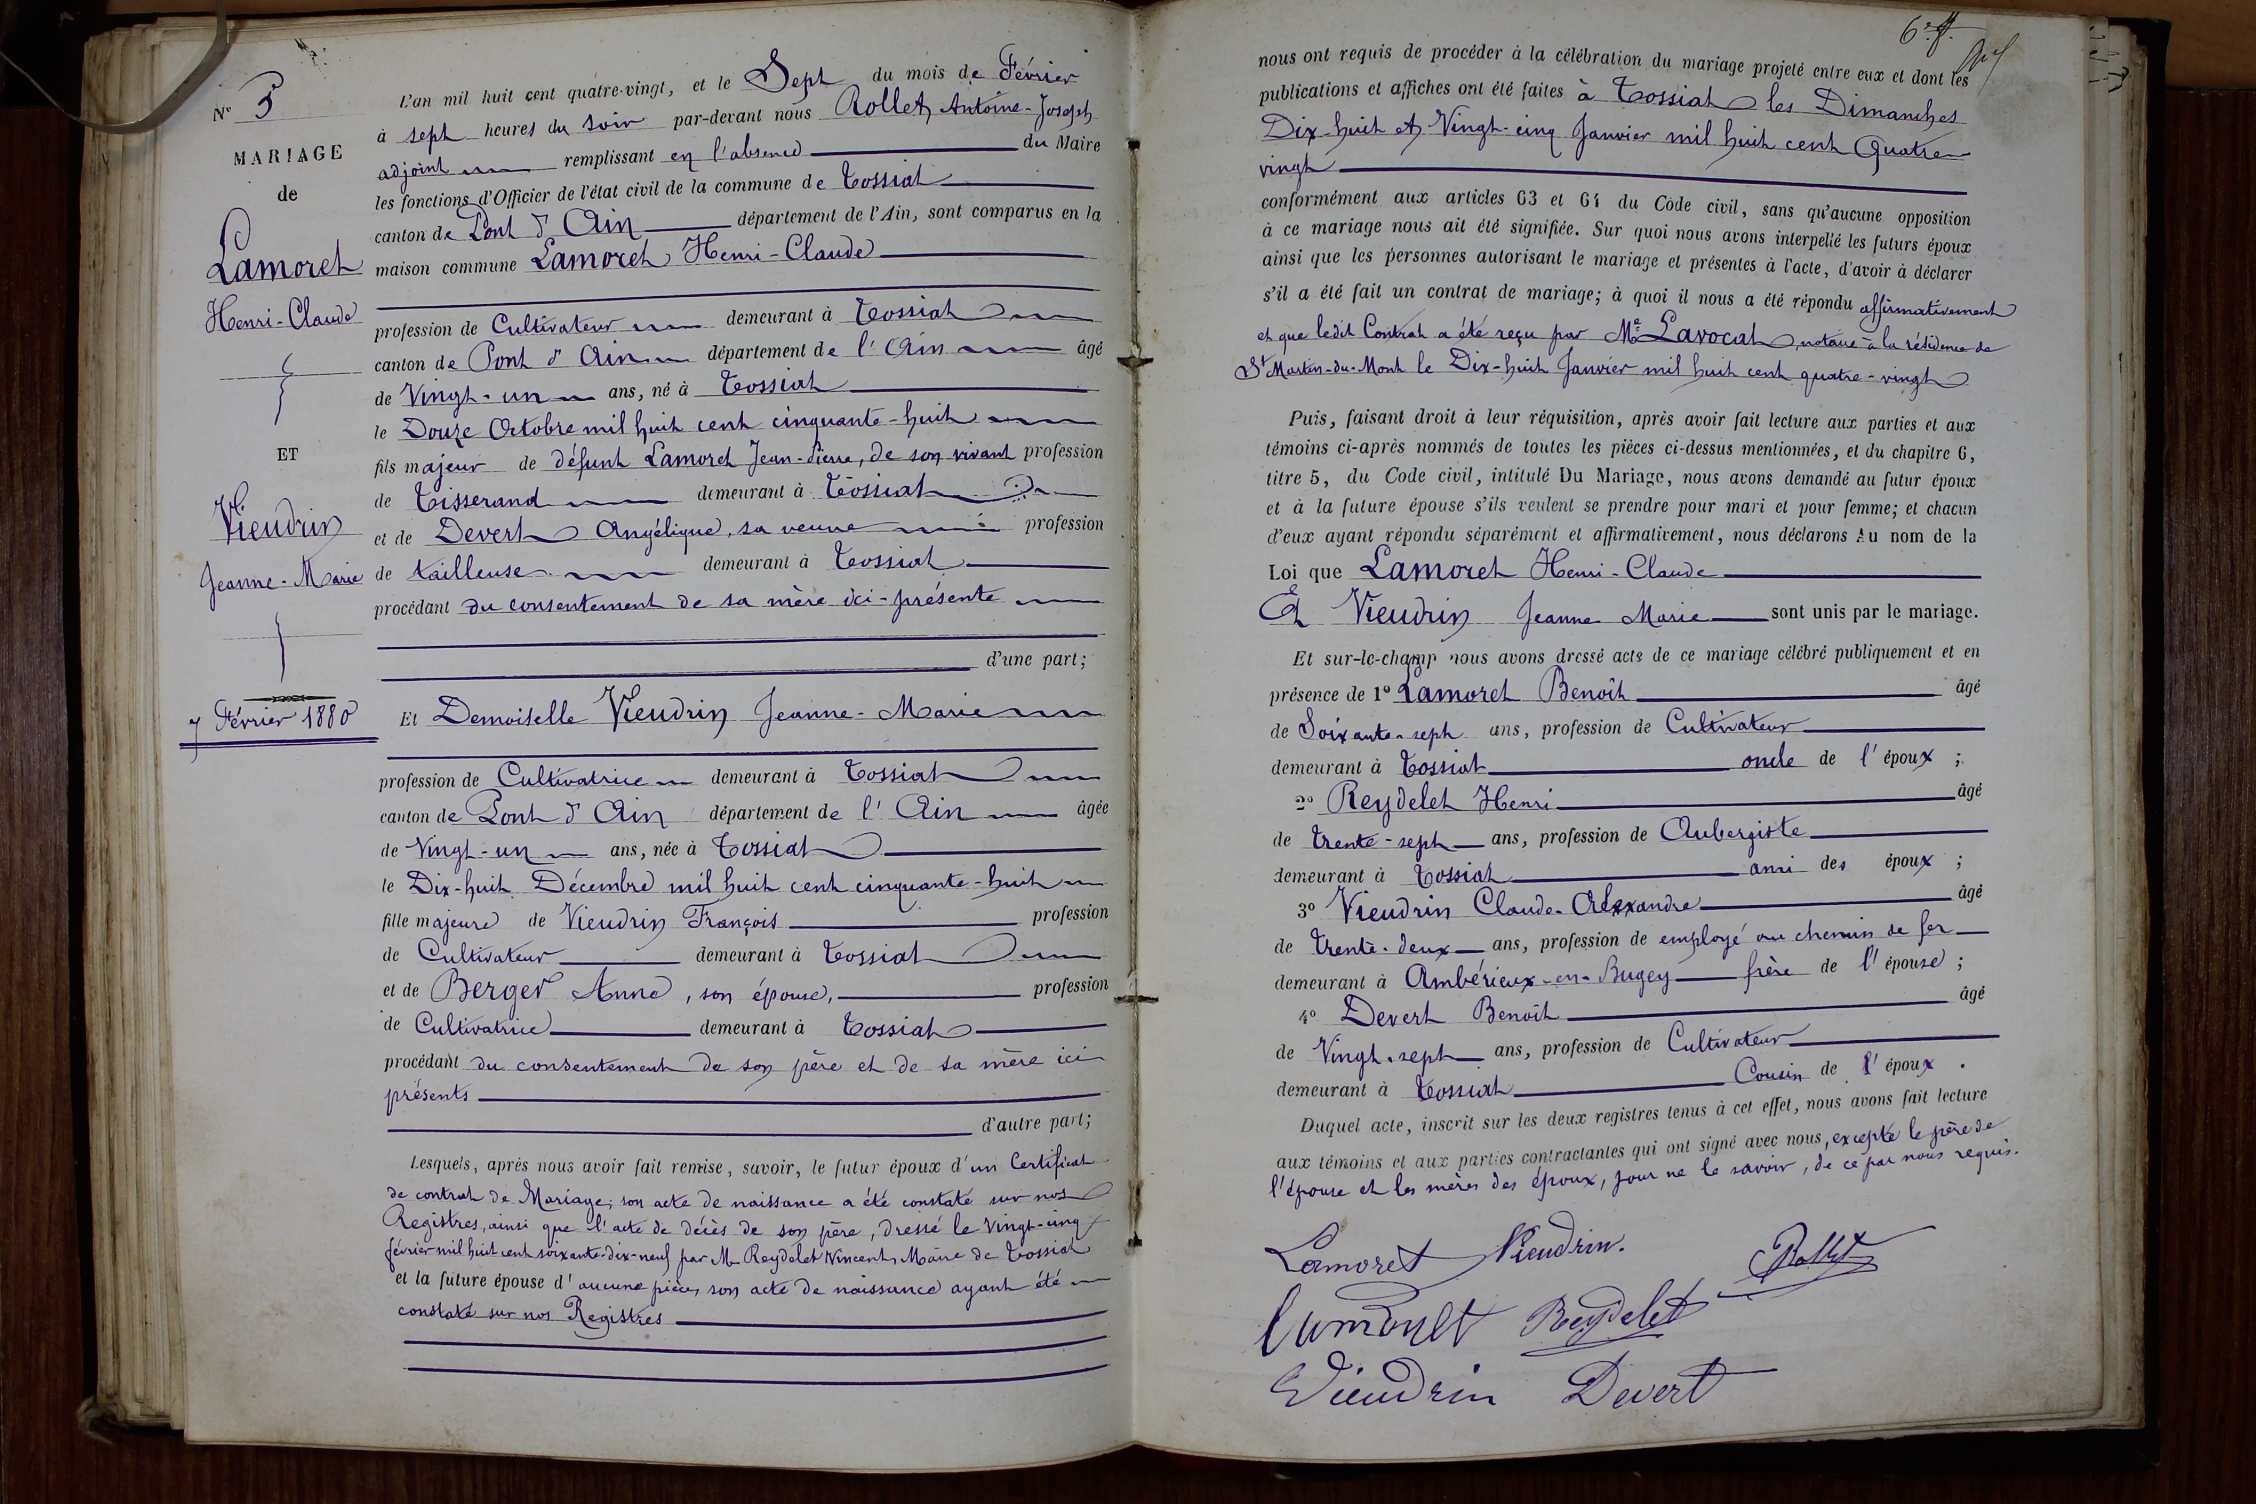 N° 5
MARIAGE
de
Lamoret
Henri-Claude
ET
Vieudrin
Jeanne-Marie
7 Février 1880
L'an mil huit cent quatre-vingt, et le Sept du mois de Février
à sept heures du soir par-devant nous Rollet Antoine-Joseph
adjoint remplissant en l'absence du Maire
les fonctions d'Officier de l'état civil de la commune de Tossiat
canton de Pont d'Ain département de l'Ain, sont comparus en la
maison commune Lamoret Henri-Claude
profession de Cultivateur demeurant à Tossiat
canton de Pont d'Ain département de l'Ain âgé
de Vingt-un ans, né à Tossiat
le Douze Octobre mil huit cent cinquante-huit
fils majeur de défunt Lamoret Jean-Pierre, de son vivant profession
de Tisserand demeurant à Tossiat
et de Devert Angélique, sa veuve profession
de tailleuse demeurant à Tossiat
procédant du consentement de sa mère ici-présente
d'une part;
Et Demoiselle Vieudrin Jeanne-Marie
profession de Cultivatrice demeurant à Tossiat
canton de Pont d'Ain département de l'Ain âgée
de Vingt-un ans, née à Tossiat
le Dix-huit Décembre mil huit cent cinquante-huit
fille majeure de Vieudrin François profession
de Cultivateur demeurant à Tossiat
et de Berger Anne, son épouse, profession
de Cultivatrice demeurant à Tossiat
procédant du consentement de son père et de sa mère ici
présents
d'autre part;
Lesquels, après nous avoir fait remise, savoir, le futur époux d'un Certificat
de contrat de Mariage; son acte de naissance a été constaté sur nos
Registres, ainsi que l'acte de décès de son père, dressé le Vingt-cinq
février mil huit cent soixante-dix-neuf par M. Reydelet Vincent, Maire de Tossiat
et la future épouse d'aucune pièce, son acte de naissance ayant été
constaté sur nos Registres
6e f.
nous ont requis de procéder à la célébration du mariage projeté entre eux et dont les
publications et affiches ont été faites à Tossiat les Dimanches
Dix-huit et Vingt-cinq Janvier mil huit cent Quatre
vingt
conformément aux articles 63 et 64 du Code civil, sans qu'aucune opposition
à ce mariage nous ait été signifiée. Sur quoi nous avons interpellé les futurs époux
ainsi que les personnes autorisant le mariage et présentes à l'acte, d'avoir à déclarer
s'il a été fait un contrat de mariage; à quoi il nous a été répondu affirmativement
et que ledit Contrat a été reçu par Me Lavocat, notaire à la résidence de
St Martin-du-Mont le Dix-huit Janvier mil huit cent quatre-vingt
Puis, faisant droit à leur réquisition, après avoir fait lecture aux parties et aux
témoins ci-après nommés de toutes les pièces ci-dessus mentionnées, et du chapitre 6,
titre 5, du Code civil, intitulé Du Mariage, nous avons demandé au futur époux
et à la future épouse s'ils veulent se prendre pour mari et pour femme; et chacun
d'eux ayant répondu séparément et affirmativement, nous déclarons Au nom de la
Loi que Lamoret Henri-Claude
Et Vieudrin Jeanne Marie sont unis par le mariage.
Et sur-le-champ nous avons dressé acte de ce mariage célébré publiquement et en
présence de 1° Lamoret Benoît âgé
de Soixante-sept ans, profession de Cultivateur
demeurant à Tossiat oncle de l'époux;
2° Reydelet Henri âgé
de trente-sept ans, profession de Aubergiste
demeurant à Tossiat ami des époux;
3° Vieudrin Claude-Alexandre âgé
de trente-deux ans, profession de employé au chemin de fer
demeurant à Ambérieux-en-Bugey frère de l'épouse;
4° Devert Benoît âgé
de Vingt-sept ans, profession de Cultivateur
demeurant à Tossiat Cousin de l'époux.
Duquel acte, inscrit sur les deux registres tenus à cet effet, nous avons fait lecture
aux témoins et aux parties contractantes qui ont signé avec nous, excepté le père de
l'épouse et les mères des époux, pour ne le savoir, de ce par nous requis.
Lamoret Vieudrin. Rollet
Lamoret Reydelet
Vieudrin Devert